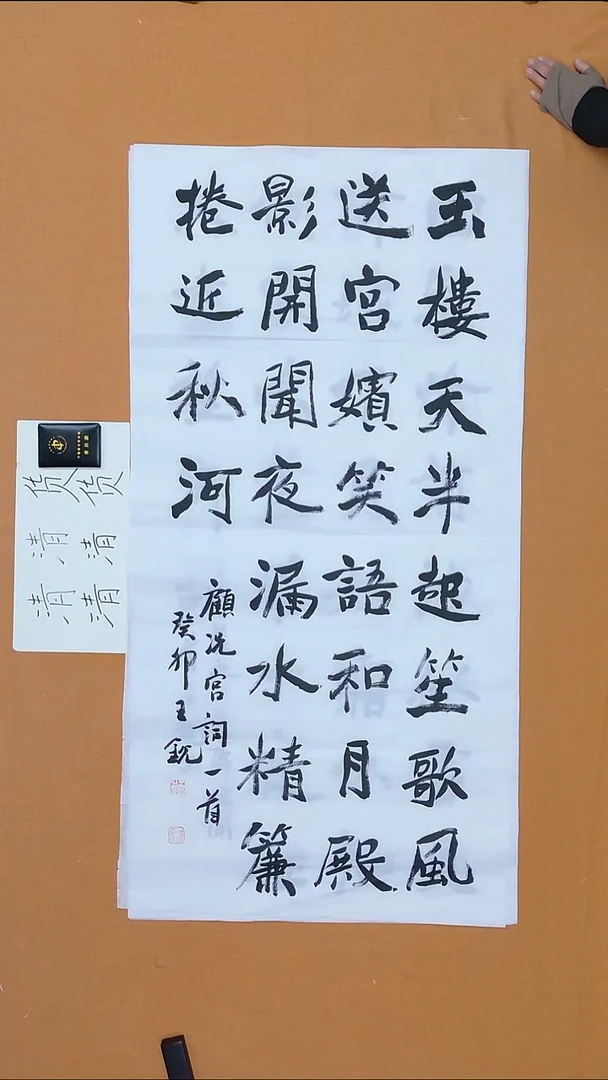 玉樓天半起笙歌風
送宮嬪笑語和月殿
影開聞夜漏水精簾
捲近秋河
顧況宮詞一首
癸卯王銳
货货
清清
清清